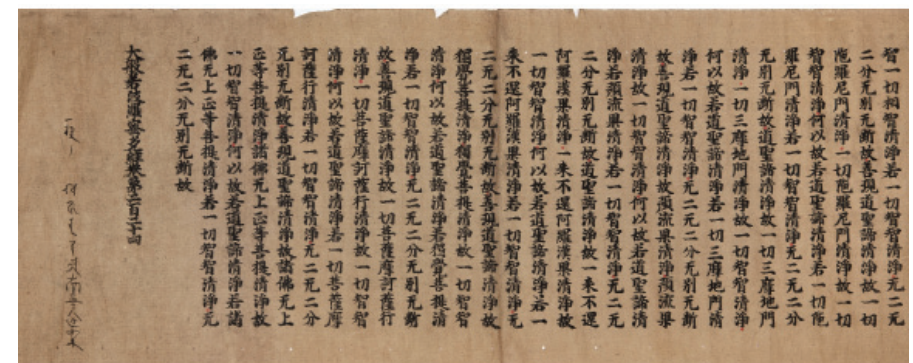 智一切相智清淨若一切智智清淨无二无
二分无別无斷故善現道聖諦清淨故一切
陁羅尼門清淨一切陁羅尼門清淨故一切
智智清淨何以故若道聖諦清淨若一切陁
羅尼門清淨若一切智智清淨无二无二分
无別无斷故道聖諦清淨故一切三摩地門
清淨一切三摩地門清淨故一切智智清淨
何以故若道聖諦清淨若一切三摩地門清
淨若一切智智清淨无二无二分无別无斷
故善現道聖諦清淨故預流果清淨預流果
清淨故一切智智清淨何以故若道聖諦清
淨若預流果清淨若一切智智清淨无二无
二分无別无斷故道聖諦清淨故一來不還
阿羅漢果清淨一來不還阿羅漢果清淨故
一切智智清淨何以故若道聖諦清淨若一
來不還阿羅漢果清淨若一切智智清淨无
二无二分无別无斷故善現道聖諦清淨故
獨覺菩提清淨獨覺菩提清淨故一切智智
清淨何以故若道聖諦清淨若獨覺菩提清
淨若一切智智清淨无二无二分无別无斷
故善現道聖諦清淨故一切菩薩摩訶薩行
清淨一切菩薩摩訶薩行清淨故一切智智
清淨何以故若道聖諦清淨若一切菩薩摩
訶薩行清淨若一切智智清淨无二无二分
无別无斷故善現道聖諦清淨故諸佛无上
正等菩提清淨諸佛无上正等菩提清淨故
一切智智清淨何以故若道聖諦清淨若諸
佛无上正等菩提清淨若一切智智清淨无
二无二分无別无斷故
大般若波羅蜜多經卷第二百三十四